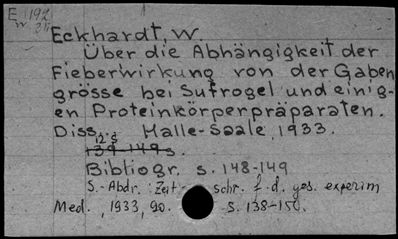 E 192
Eckhardt, W.
Über die Abhängigkeit der
Fieberwirkung von der Gaben
grösse bei Sufrogel und einig-
en Proteinkörperpräparaten.
Diss. Halle-Saale, 1933.
139-149 s.
Bibliogr. s. 148-149
S.-Abdr. : Zeit- schr. f. d. ges. experim
Med., 1933, 90. S. 138-150.